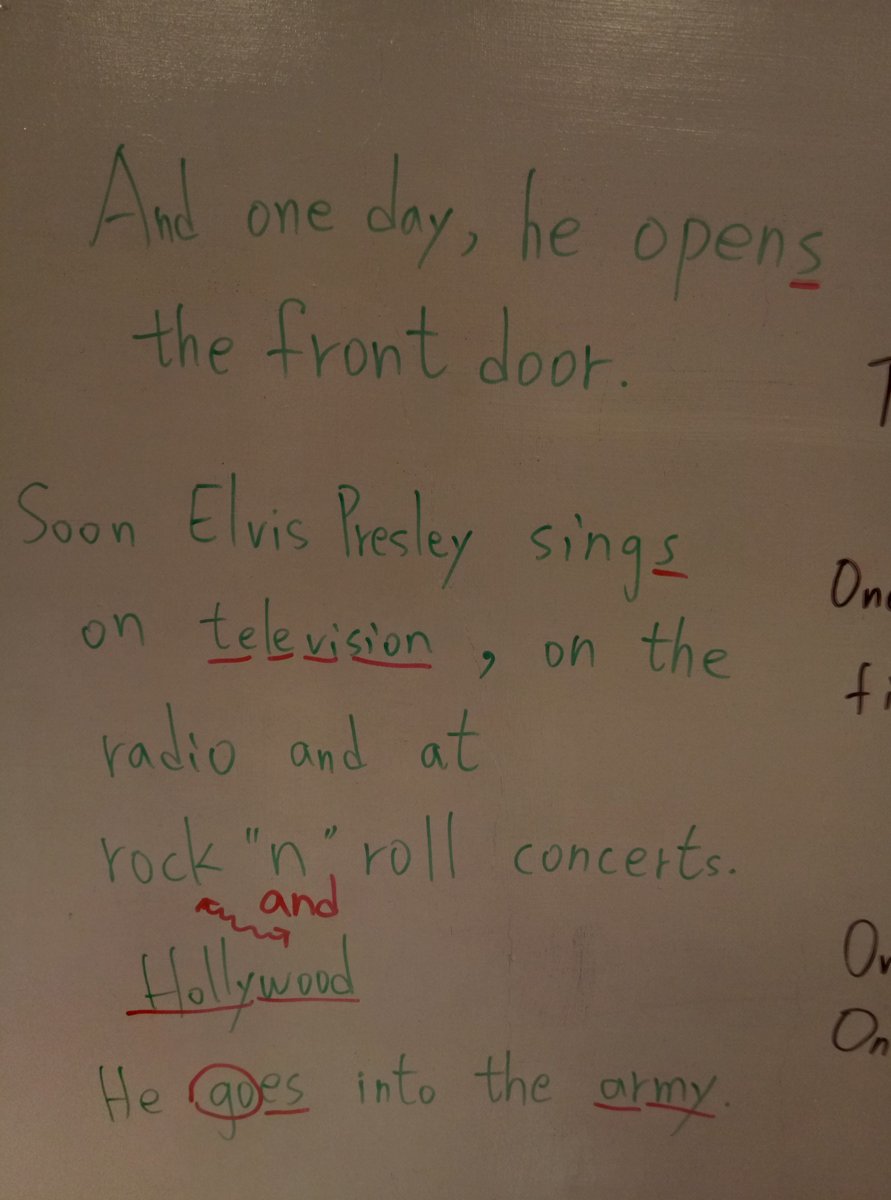 And one day, he opens
the front door.
Soon Elvis Presley sings
on television, on the
radio and at
rock "n" roll concerts.
and
Hollywood
He goes into the army.